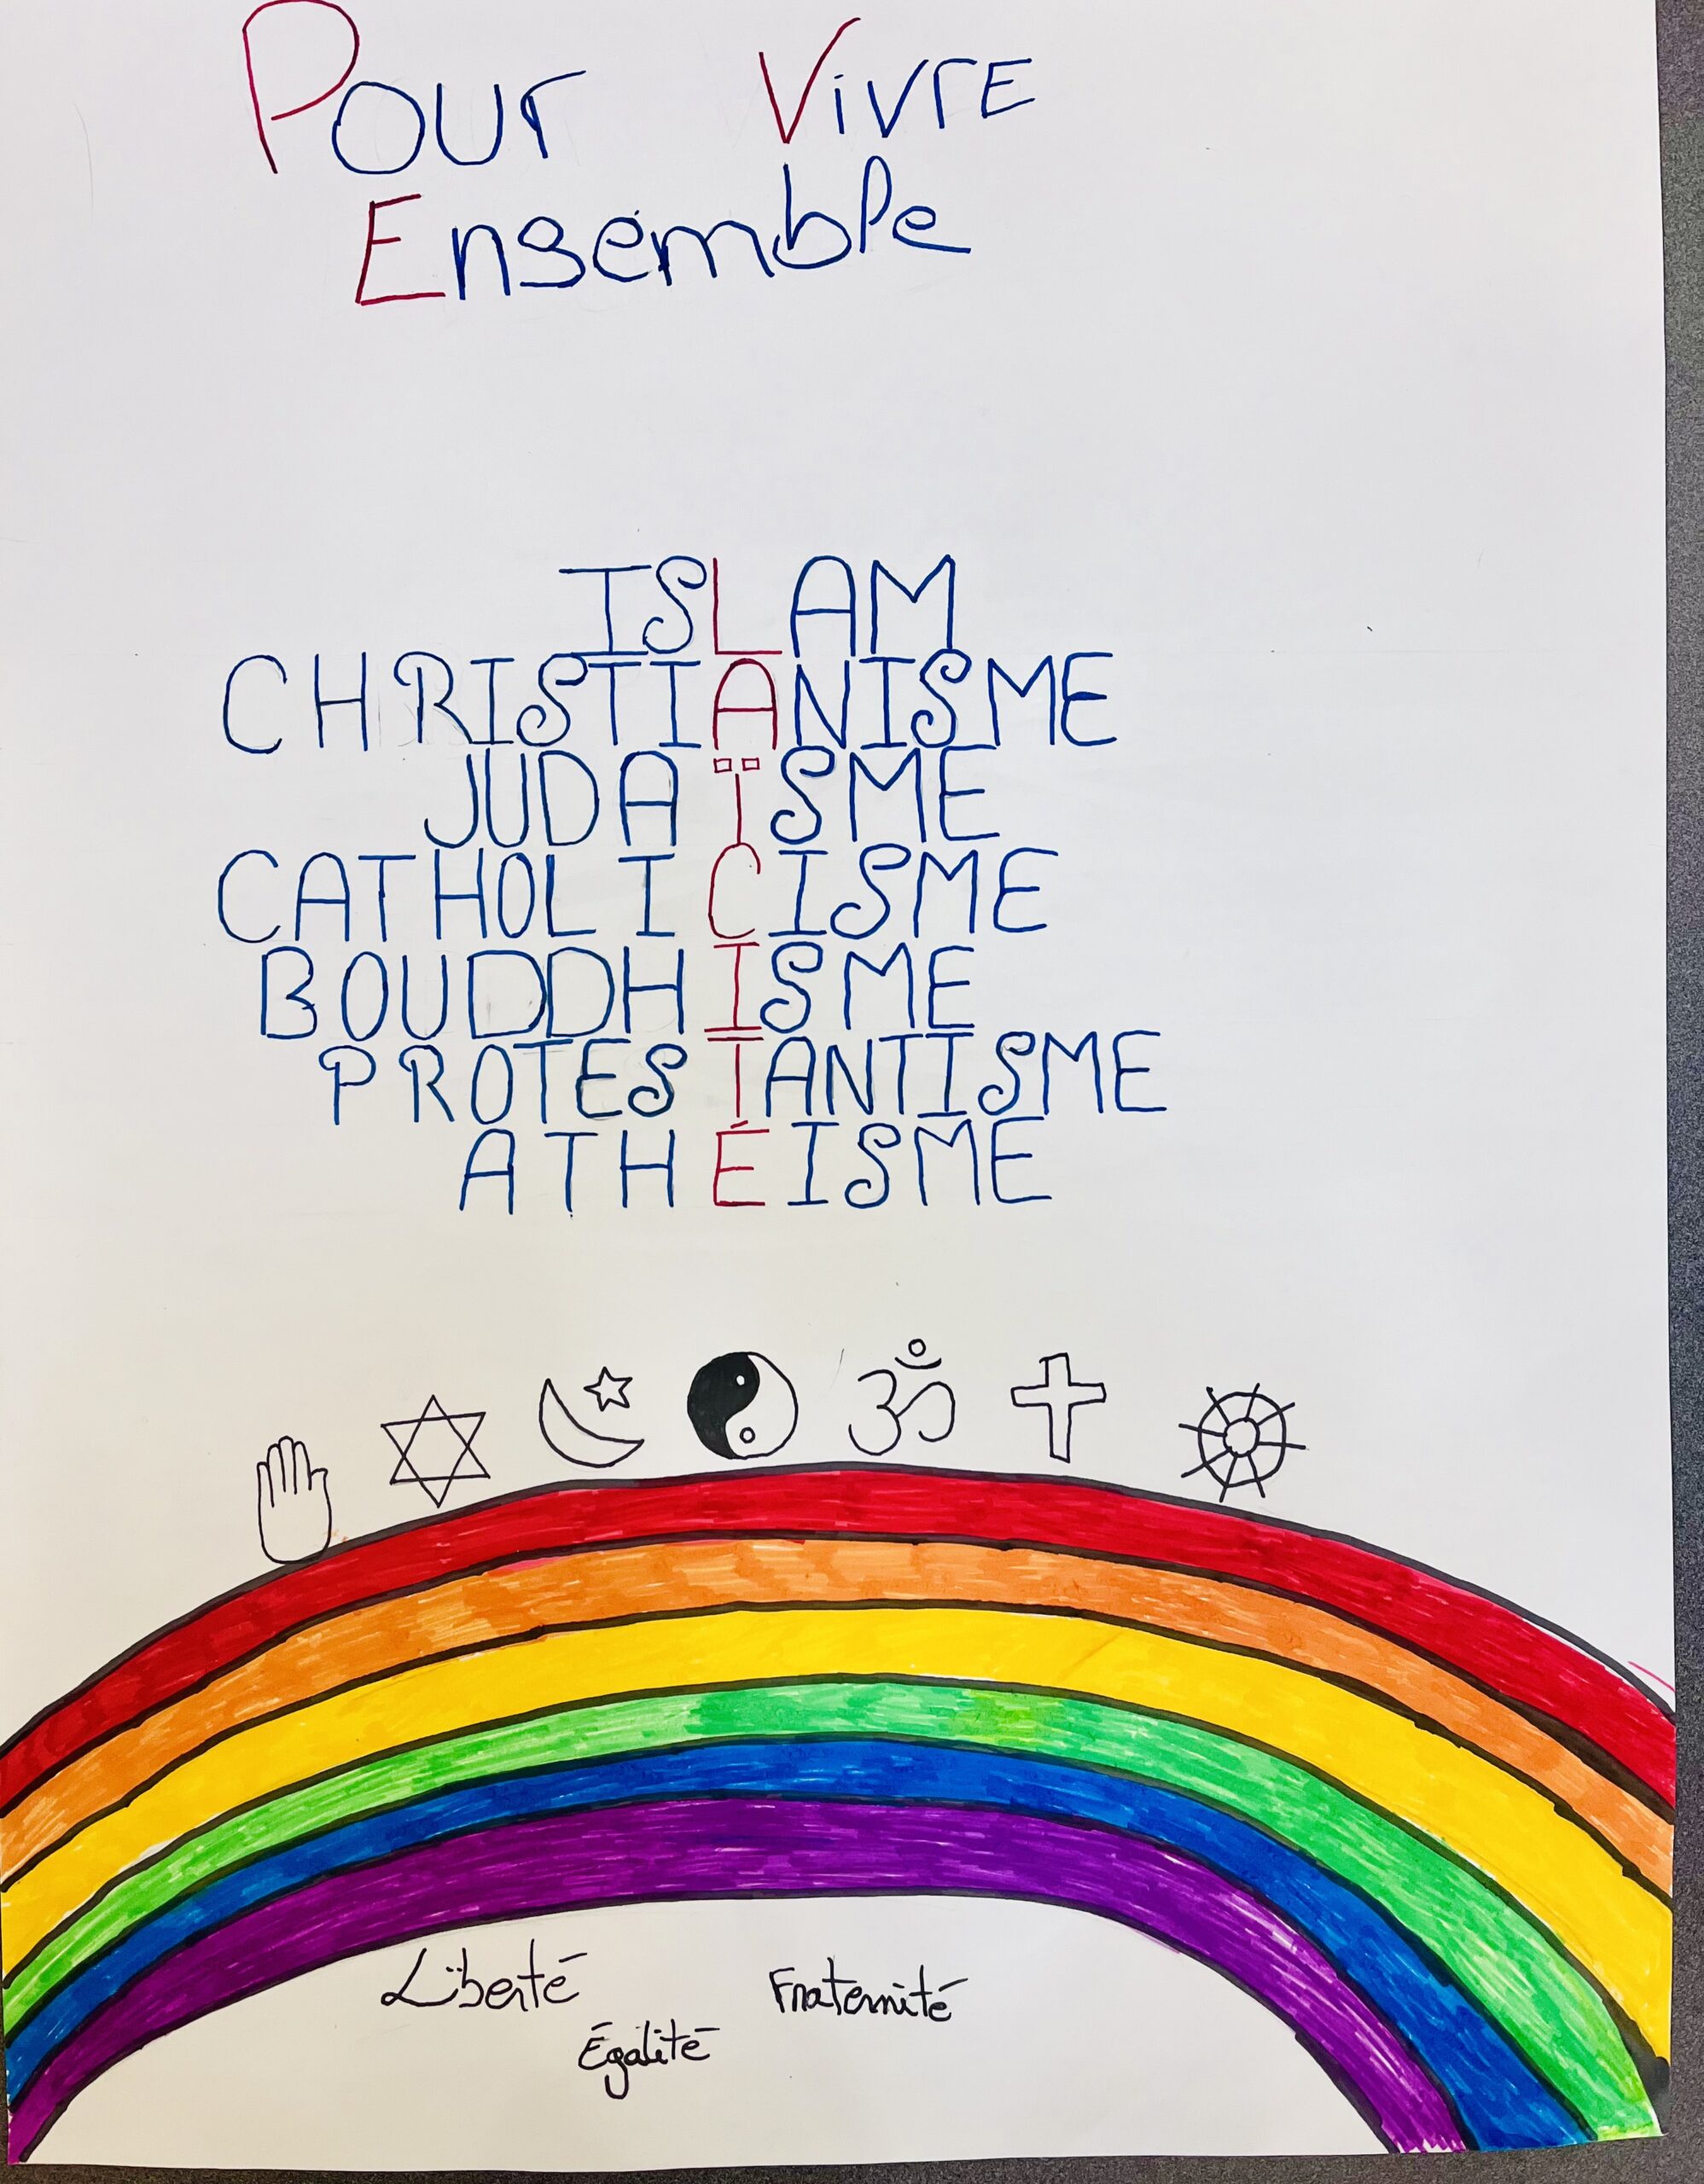 Pour Vivre
Ensemble
ISLAM
CHRISTIANISME
JUDAÏSME
CATHOLICISME
BOUDDHISME
PROTESTANTISME
ATHÉISME
ॐ
Liberté Fraternité
Égalité